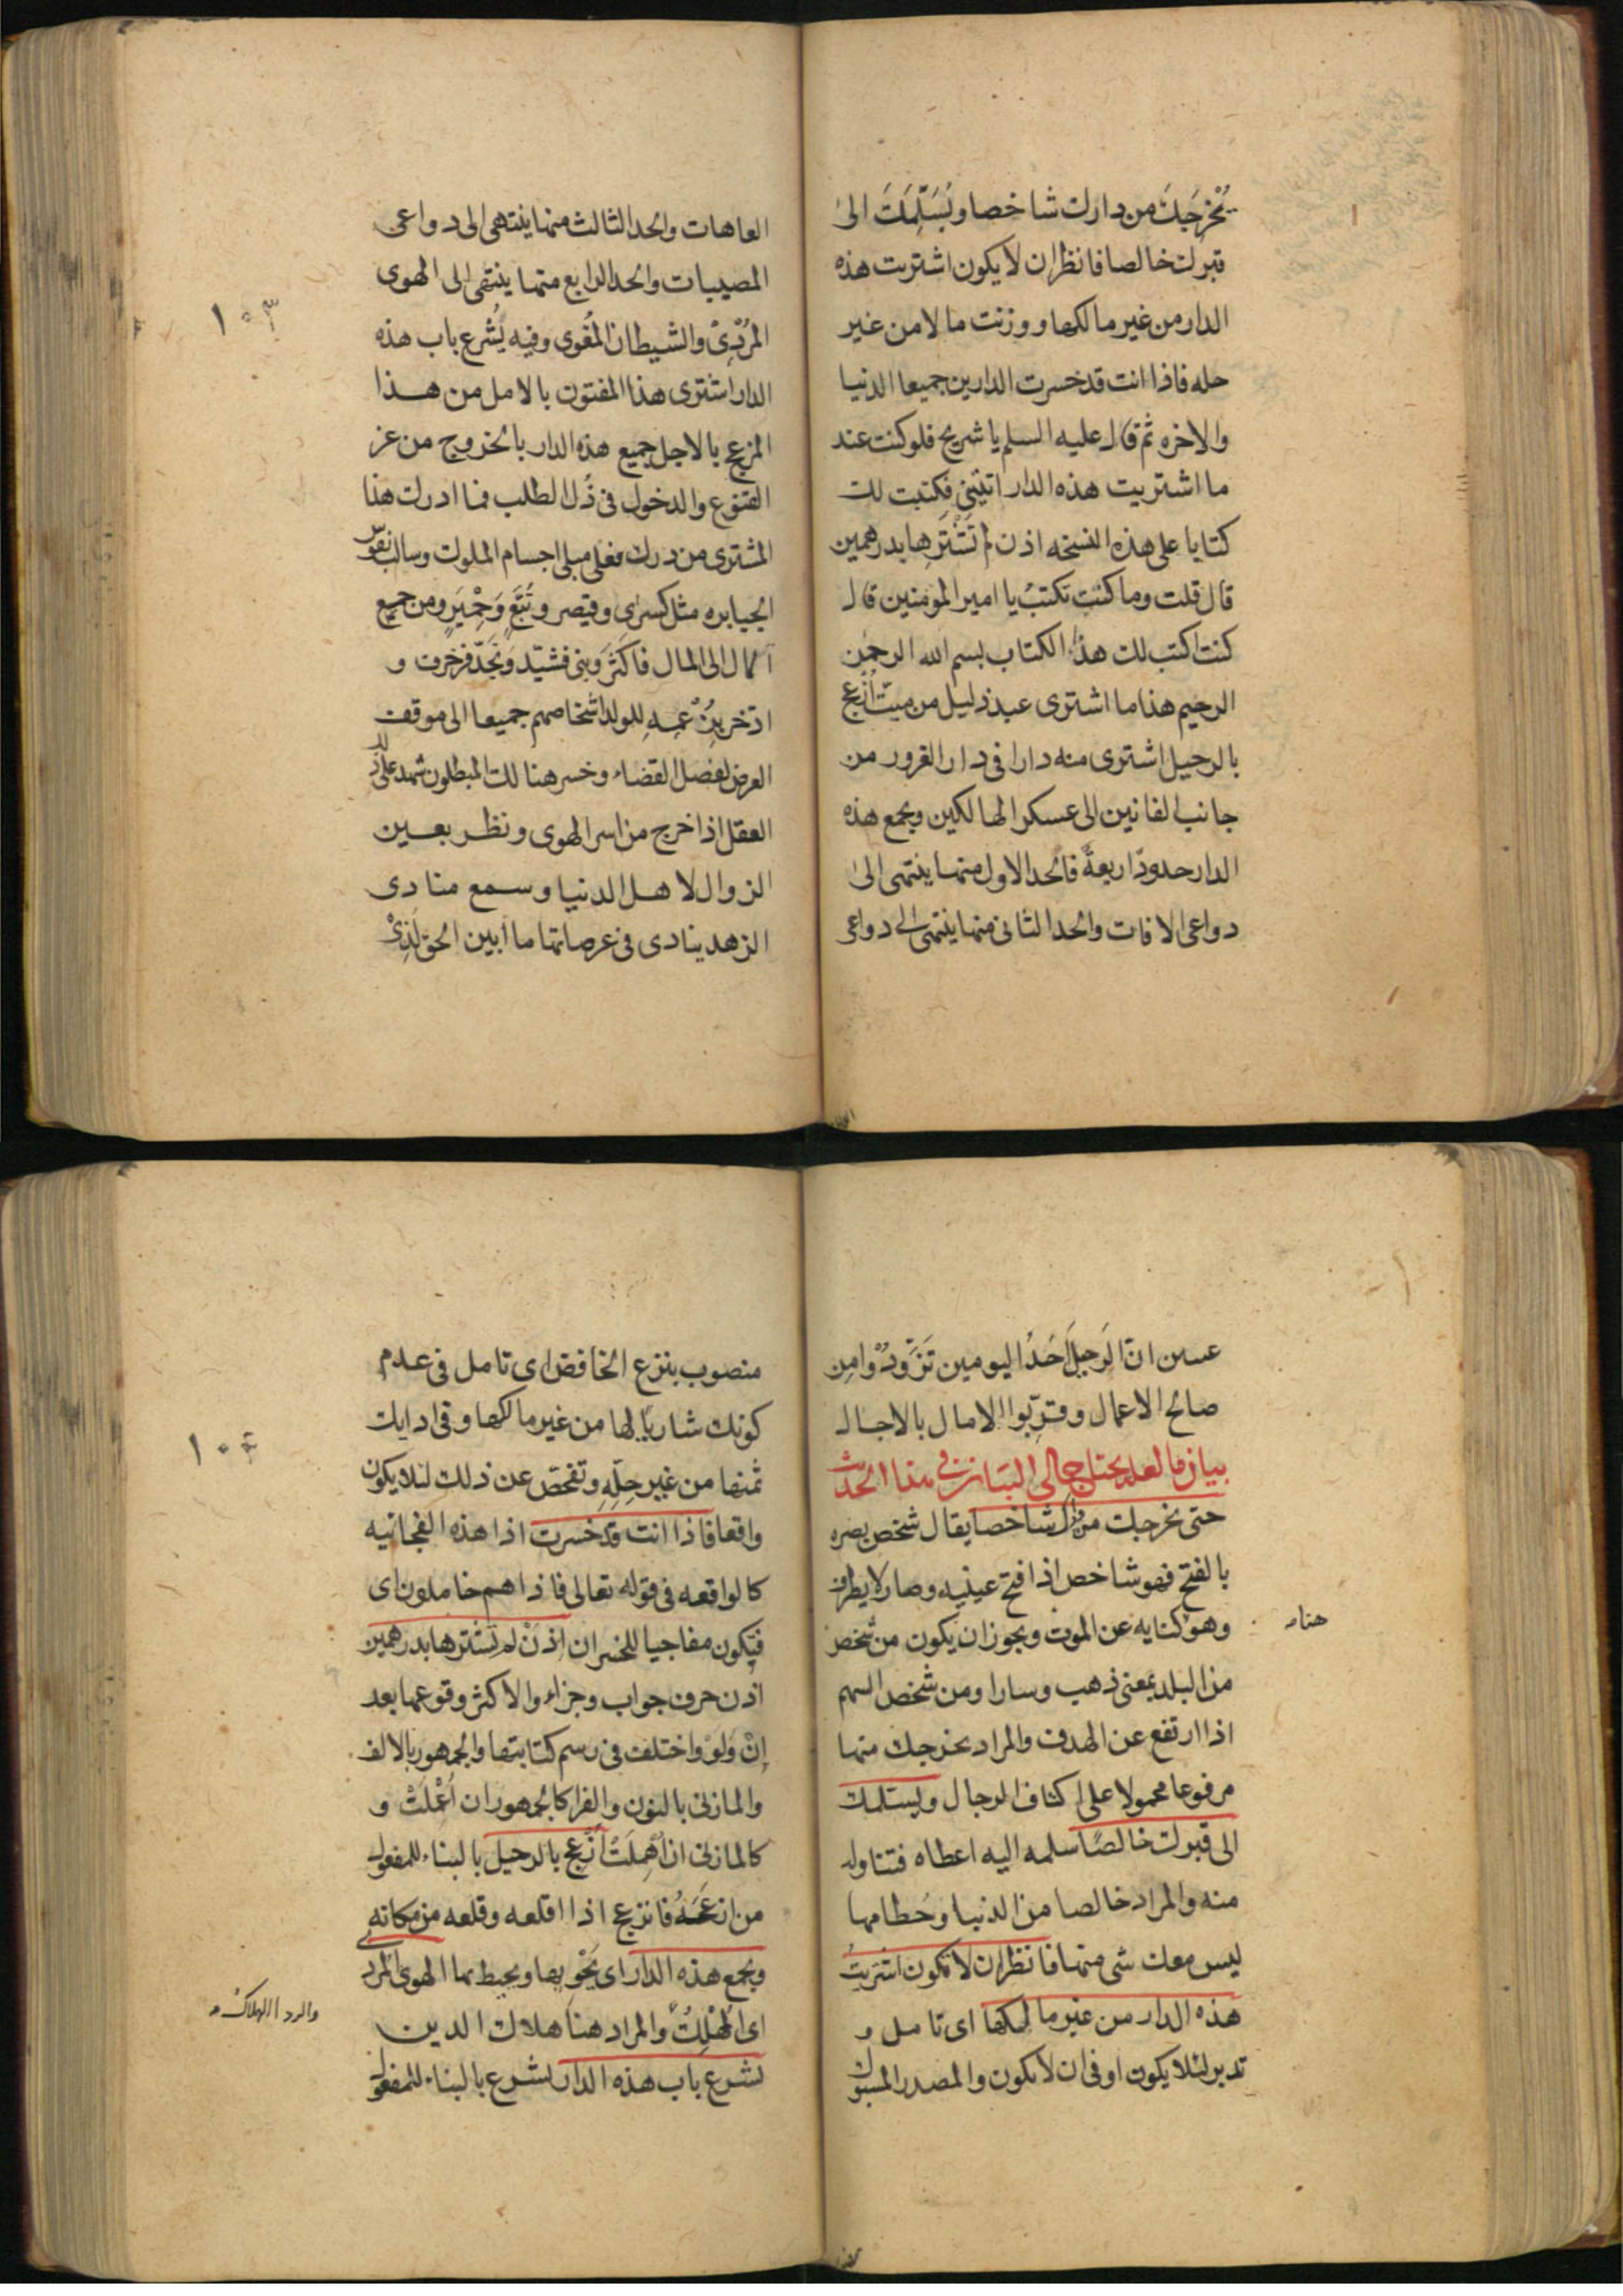 يُخْرِجَكَ من دارك شاخصا ويُسَلِّمَكَ الىٰ
قبرك خالصا فانظر ان لا يكون اشتريت هذه
الدار من غير مالكها ووزنت مالا من غير
حله فاذا انت قد خسرت الدارين جميعا الدنيا
والاخره ثم قال عليه السلم يا شريح فلو كنت عند
ما اشتريت هذه الدار اتيتني فكتبت لك
كتابا على هذه النسخه اذن لم تَشْتَرِها بدرهمين
قال قلت وما كنت تكتب يا امير المؤمنين قال
كنت اكتب لك هذا الكتاب بسم الله الرحمن
الرحيم هذا ما اشترى عبد ذليل من ميت اُزْعِجَ
بالرحيل اشترى منه دارا في دار الغرور من
جانب الفانين الى عسكر الهالكين ويجمع هذه
الدار حدودًا اربعةً فالحد الاول منها ينتهى الىٰ
دواعى الافات والحد الثانى منها ينتهى الى دواعى
العاهات والحد الثالث منها ينتهى الى دواعى
المصيبات والحد الرابع منها ينتهى الى الهوى
المُرْدِىْ والشيطان المُغوى وفيه يُشرع باب هذه
الدار اشترى هذا المفتون بالامل من هذا
المزعج بالاجل جميع هذه الدار بالخروج من عز
القنوع والدخول فى ذُل الطلب فما ادرك هذا
المشترى من درك فعلى مبلى اجسام الملوك وسالب نفوس
الجبابره مثل كسرى وقيصر وتُبَّعٍ وَحِمْيَرٍ ومن جمع
المال الى المال فاكثَرَ وَبنى فشيّد وَنَجَّدَ فزخرف و
ادّخر بِزُعْمِهِ للولد اشخاصهم جميعا الى موقف
العرض لفصل القضاء وخسر هنالك المبطلون شهد على ذلك
العقل اذا خرج من اسر الهوى ونظر بعين
الزوال لاهل الدنيا وسمع منادى
الزهد ينادى فى عرصاتها ما ابين الحق لِذِىْ
١٠٣
عينين انّ الرَحِيلَ اَحَدُ اليومين تَزَوَّدُوْا مِن
صالح الاعمال وقرِّبوا الامال بالاجال
بيان ما لعله يحتاج الى البيان فى هذا الحديث
حتى يخرجك من دارك شاخصا يقال شخص بصره
بالفتح فهو شاخص اذا فتح عينيه وصار لا يطرف
وهو كنايه عن الموت ويجوز ان يكون من شخص
هنا مـ
من البلد بمعنى ذهب وسار او من شخص السهم
اذا ارتفع عن الهدف والمراد يخرجك منها
مرفوعا محمولا على اكتاف الرجال ويسلمك
الى قبرك خالصًا سلمه اليه اعطاه فتناوله
منه والمراد خالصا من الدنيا وحُطامها
ليس معك شى منها فانظر ان لا تكون اشتريتَ
هذه الدار من غير مالكها اى تامل و
تدبر لئلا يكون او فى ان لا يكون والمصدر المسبوك
منصوب بنزع الخافض اى تامل فى عدم
كونك شاريًا لها من غير مالكها وفى ادايك
ثمنها من غير حِلِّهِ وتفحّص عن ذلك لئلا يكون
واقعا فاذا انت قد خسرت اذا هذه الفجائيه
كالواقعه فى قوله تعالى فاذا هم خامدون اى
فيكون مفاجيا للخسران اِذَنْ لم تشترها بدرهمين
اذن حرف جواب وجزاء والاكثر وقوعها بعد
اِنْ وَلَوْ واختلف فى رسم كتابتها والجمهور بالالف
والمازنى بالنون والفرا كالجمهور ان اُعْمِلَتْ و
كالمازنى ان اُهْمِلَتْ اُزْعِج بالرحيل بالبناء للمفعول
من ازعَجَهُ فانزعج اذا اقلعه وقلعه من مكانه
ويجمع هذه الدار اى يَحْوِيها ويحيط بها الهوى المردى
اى المُهْلِكُ والمراد هنا هلاك الدين
والردا الهلاك مـ
يشرع باب هذه الدار يشرع بالبناء للمفعول
١٠٤